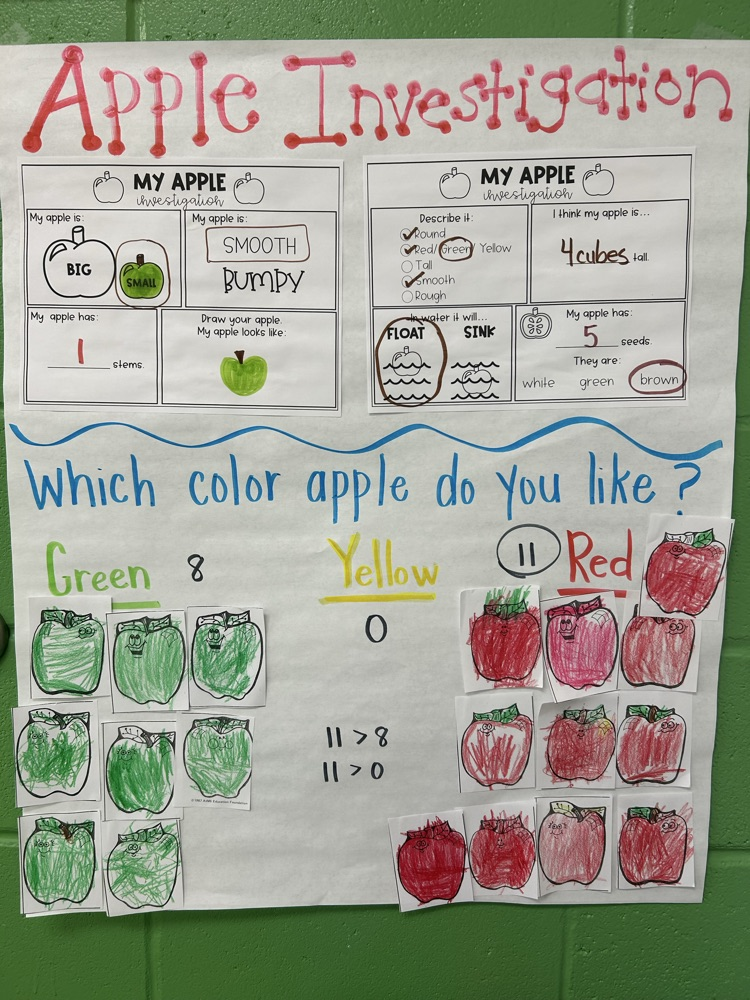 Apple Investigation
MY APPLE
investigation
My apple is:
BIG
SMALL
My apple is:
SMOOTH
BUMPY
My apple has:
1 stems.
Draw your apple.
My apple looks like:
MY APPLE
investigation
Describe it:
Round
Red/Green/Yellow
Tall
Smooth
Rough
I think my apple is...
4 cubes tall.
In water it will...
FLOAT
SINK
My apple has:
5 seeds.
They are:
white green brown
Which color apple do you like?
Green 8
Yellow
0
11 Red
11 > 8
11 > 0